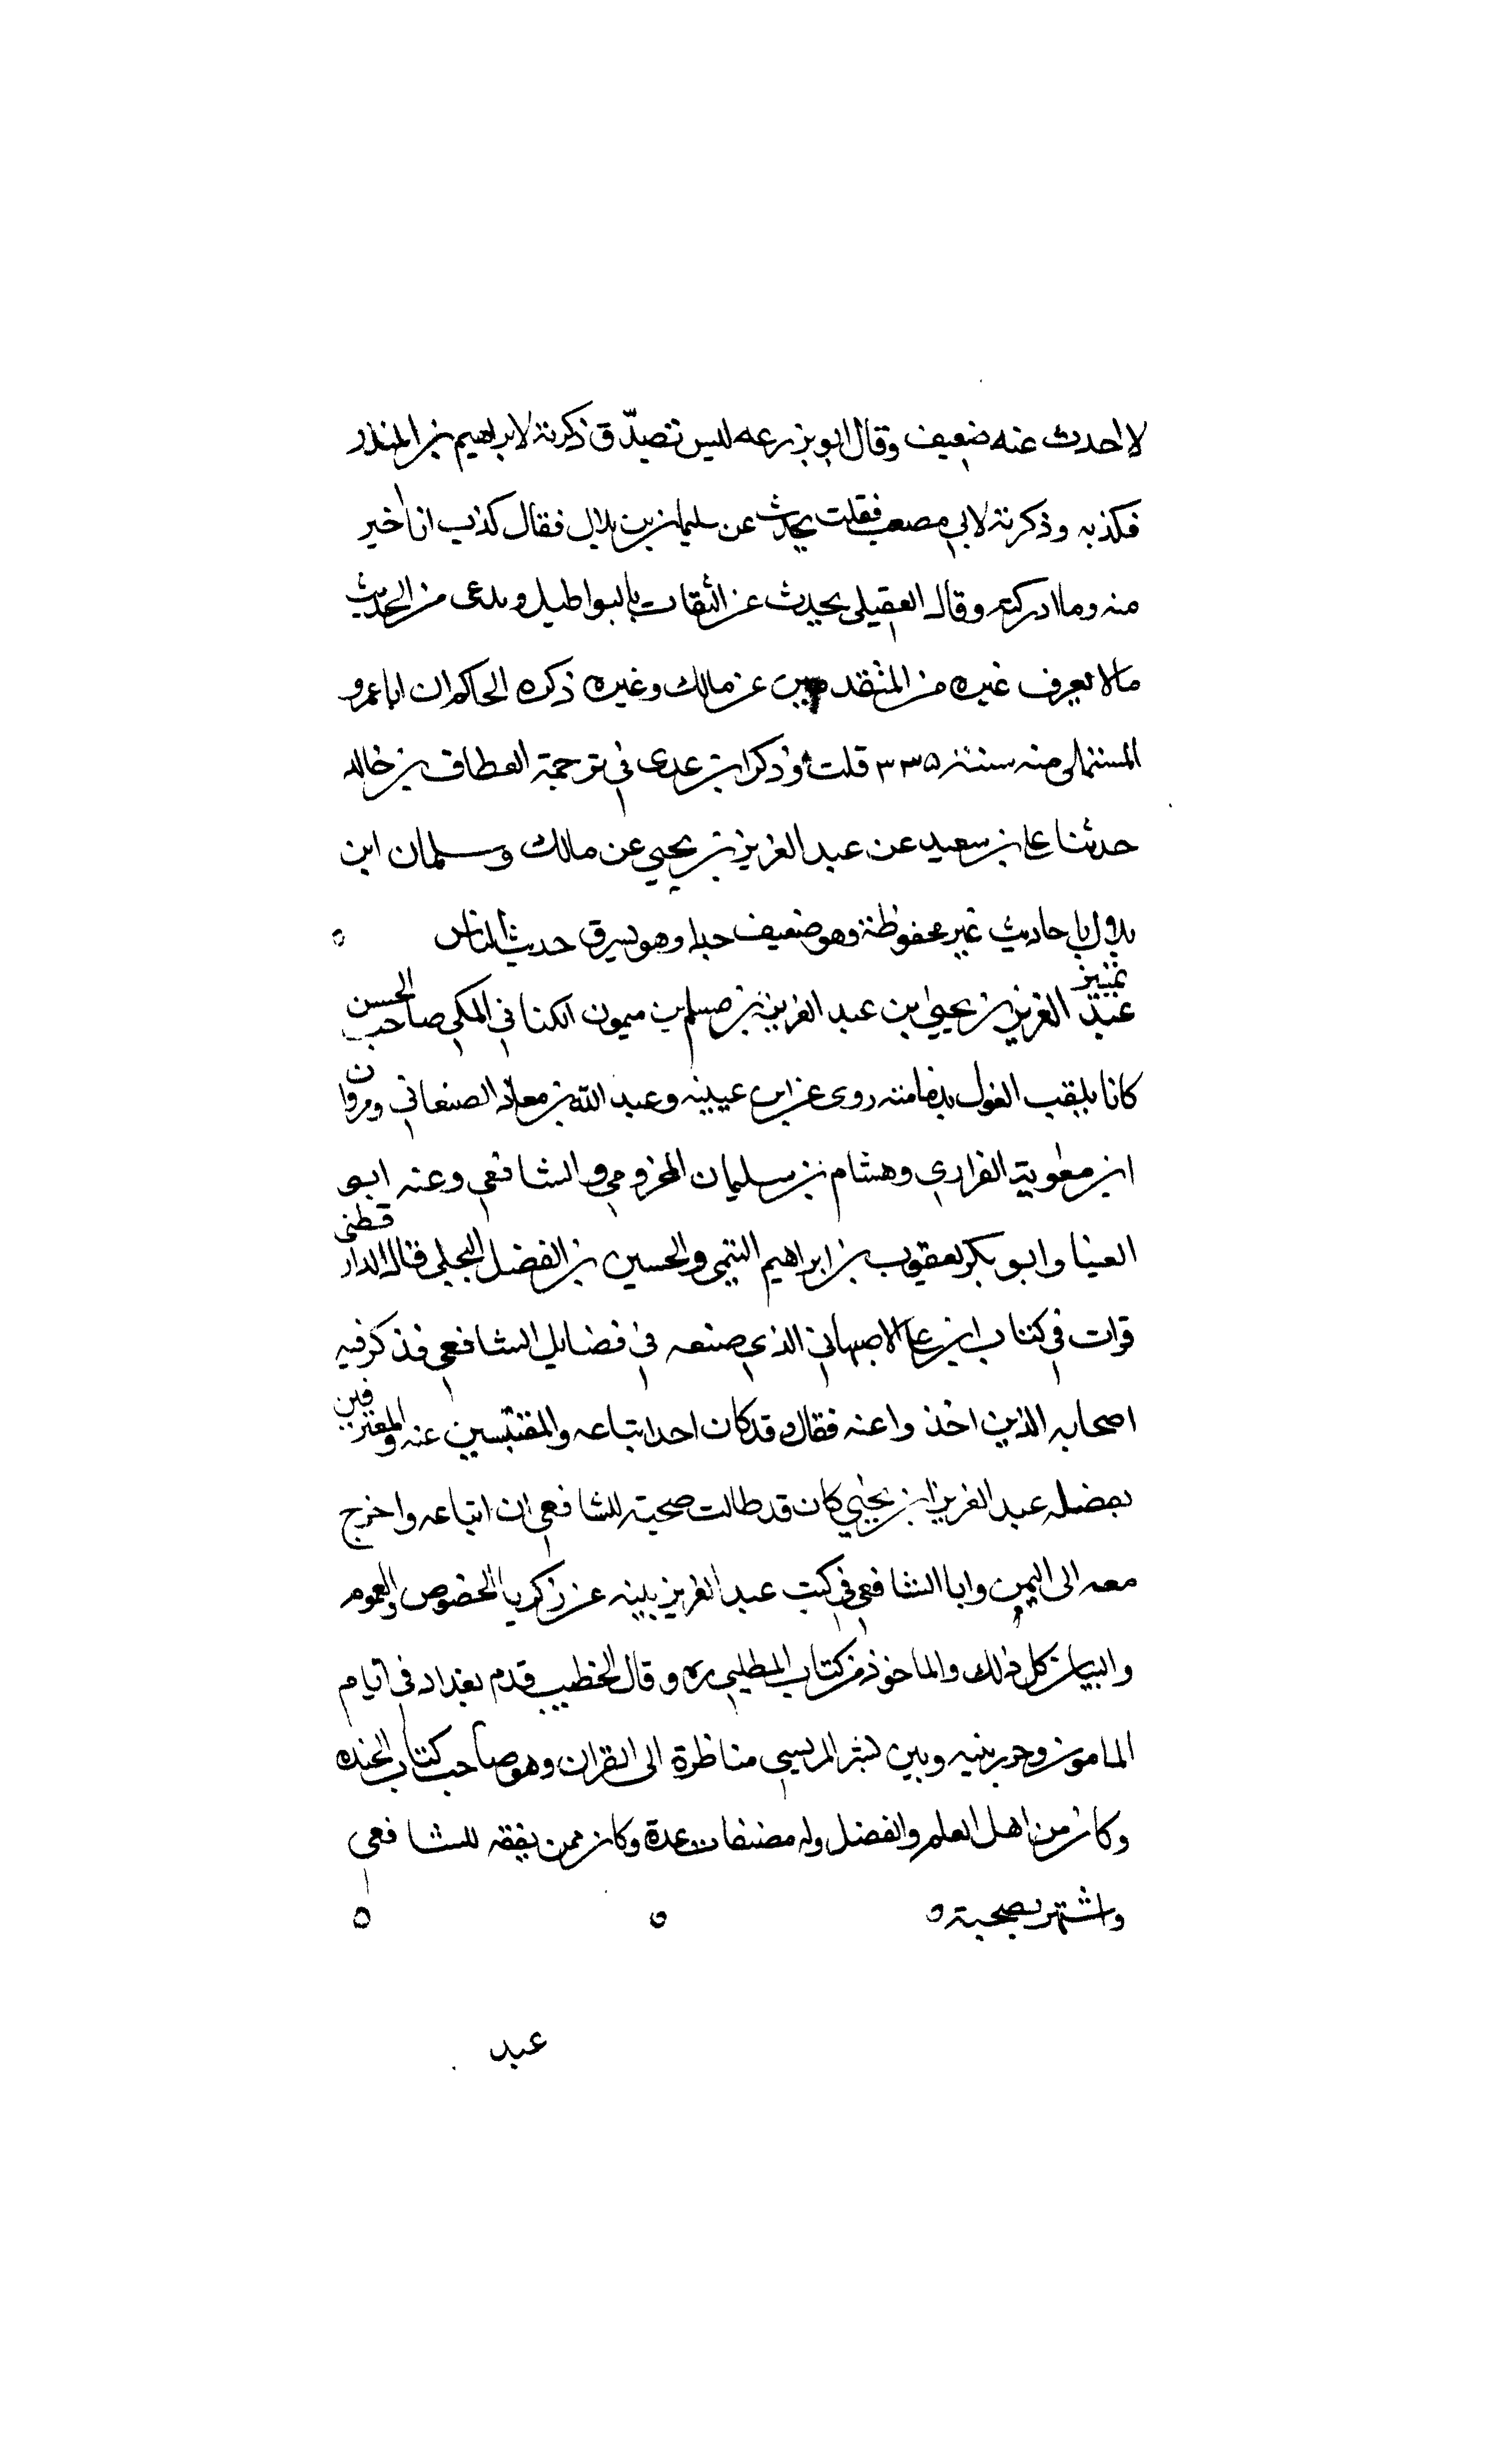 لا احدث عنه ضعيف وقال ابو بزرعه ليس تصدّق ذكرته لابراهيم بن المنذر
فكذبه وذكرته لابي مصعب فقلت يحدث عن سليمان بن بلال فقال كذب انا اخير
منه وما ادركته وقال العقيلي يحدث عن الثقات بالبواطيل ويدعي من الحديث
مالا يعرف غيره من المتقدمين عن مالك وغيره ذكره الحاكم ان ابا عمرو
المستملي منه سنة ٣٣٥ قلت وذكر ابن عدي في ترجمة العطاف بن خالد
حدثنا علي بن سعيد عن عبد العزيز بن يحيي عن مالك وسليمان ابن
بلال باحاديث غير محفوظة وهو ضعيف جدا وهو يسرق حديث الناس ٥
تمييز
عبد العزيز بن يحيي بن عبد العزيز بن مسلم بن ميمون الكناني المكي صاحب الحسن
كانا يلقب الغول بدمامته روى عن ابن عيينه وعبد الله بن معاذ الصنعاني ومروان
ابن معوية الفزاري وهشام بن سليمان المخزومي والشافعي وعنه ابو
العينا وابو بكر يعقوب بن ابراهيم التيمي والحسين بن الفضل البجلي قال الدارقطني
قرات في كتاب ابن علي الاصبهاني الذي صنعه في فضايل الشافعي فذكر فيه
اصحابه الذين اخذوا عنه فقال وقد كان احد اتباعه والمقتبسين عنه والمعترفين
بفضله عبد العزيز ابن يحيي كان قد طالت صحبته للشافعي ان اتباعه واخرج
معه الى اليمن وابا الشافعي في كتب عبد العزيز بينه عن زكريا الخصوص والعموم
والبيان كل ذلك والماخوذ من كتاب المطلبي ره وقال الخطيب قدم بغداد في ايام
المامون وجر بينه وبين بشر المريسي مناظرة الى القران وهو صاحب كتاب الحيده
وكان من اهل العلم والفضل وله مصنفات عدة وكان ممن يفقه للشافعي
واشتهر بصحبته ٥ ٥ ٥
عبد